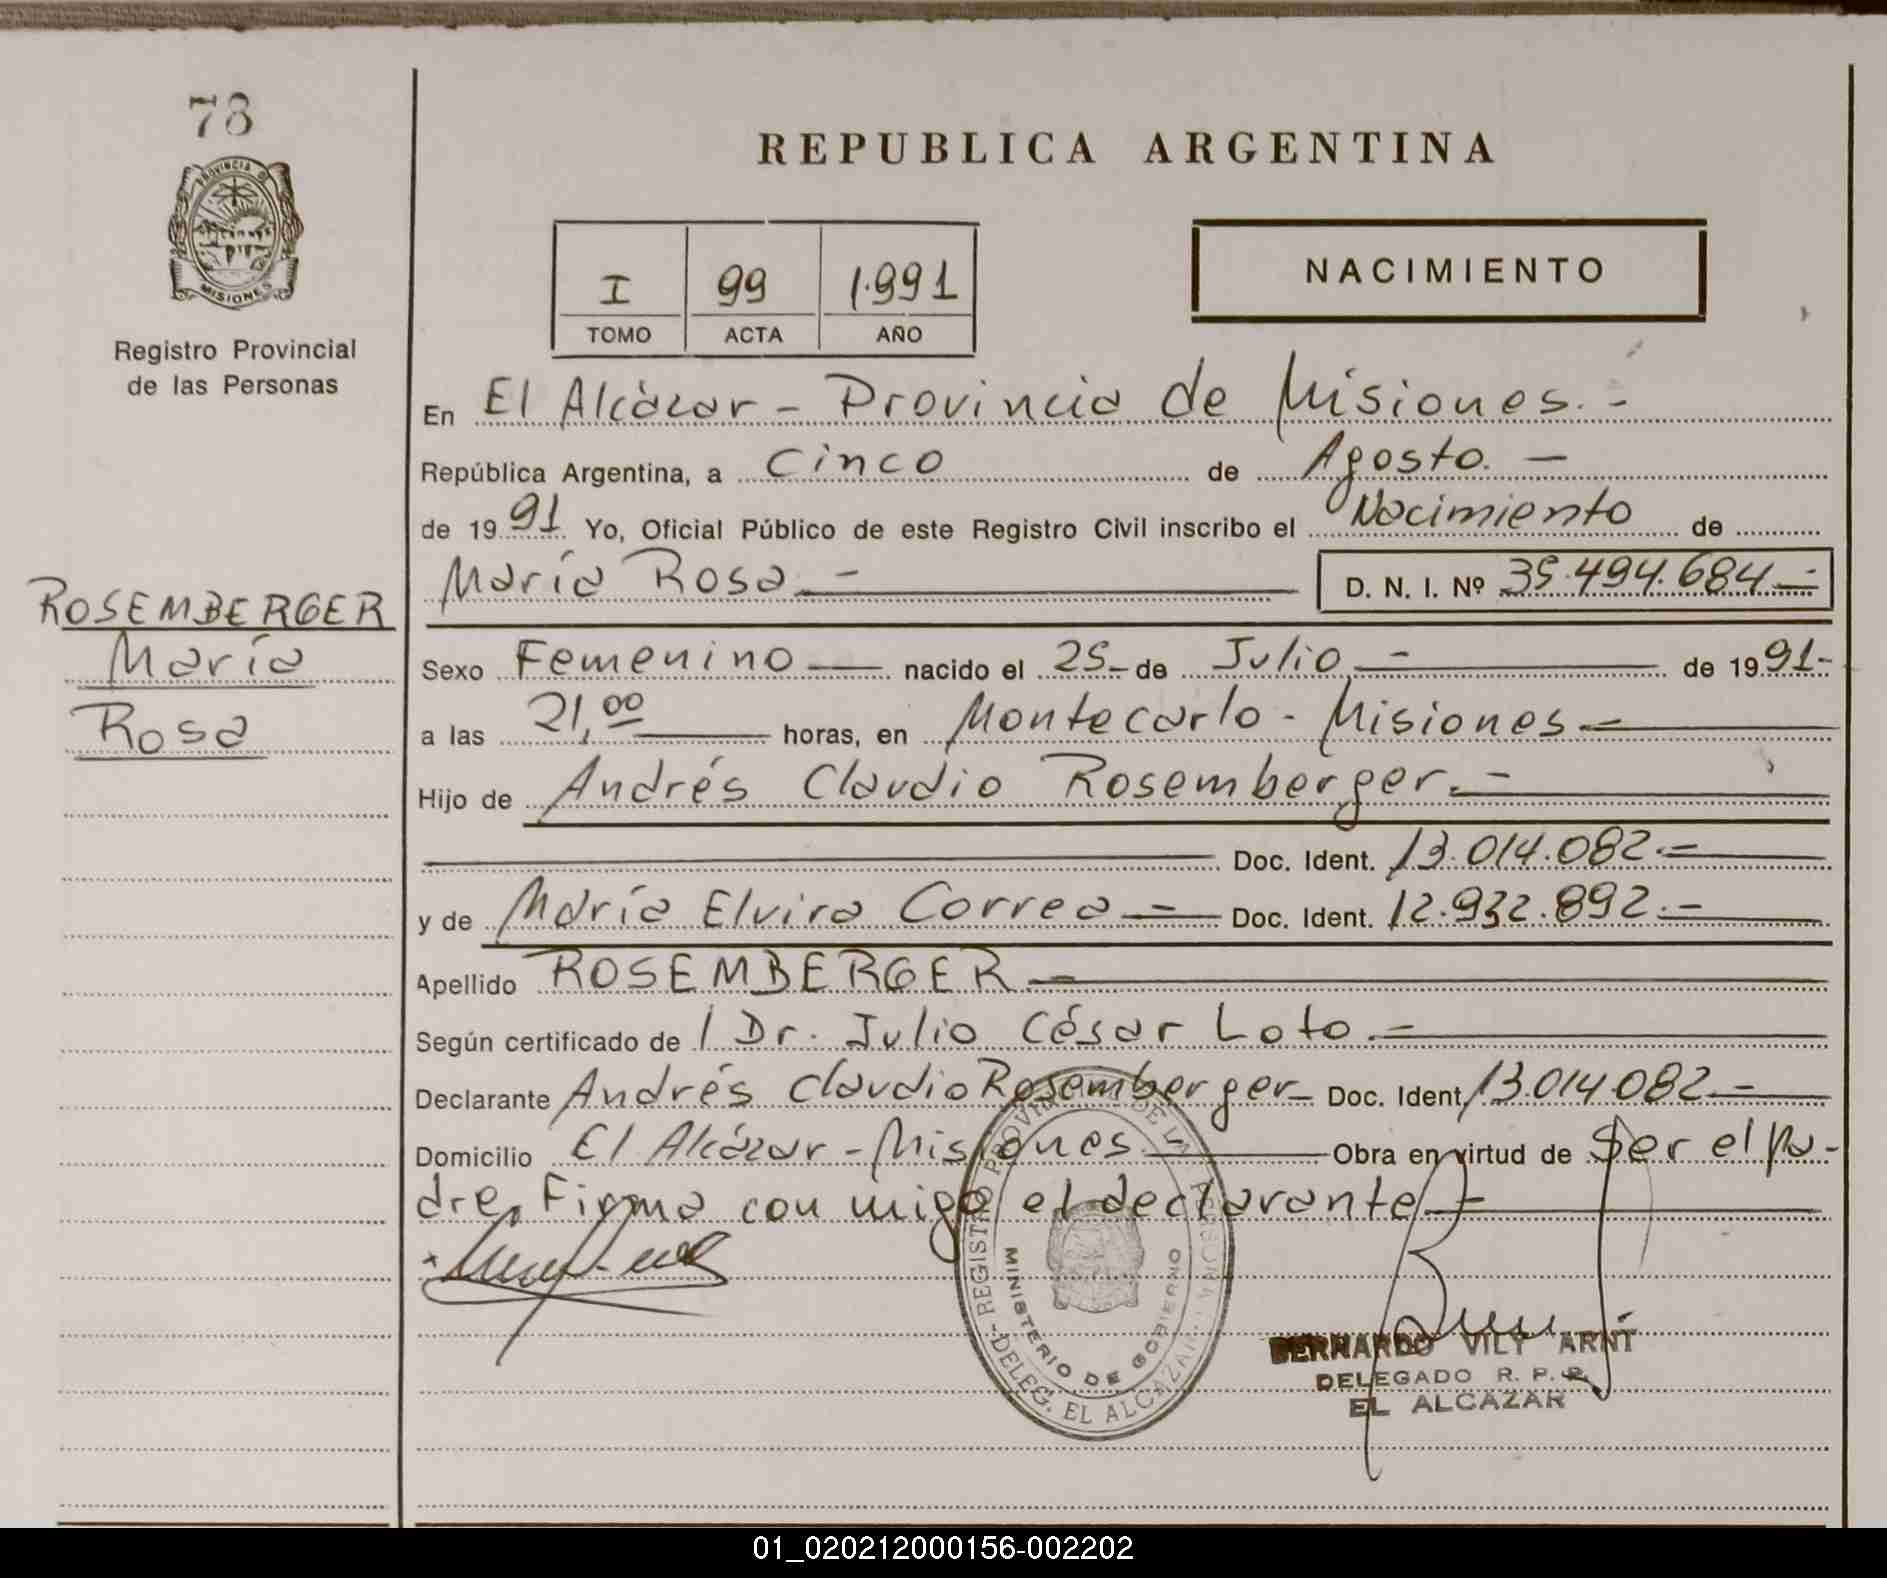 78
PROVINCIA D
MISIONES
Registro Provincial
de las Personas
ROSEMBERGER
María
Rosa
REPUBLICA ARGENTINA
I 99 1.991
TOMO ACTA AÑO
NACIMIENTO
En El Alcázar - Provincia de Misiones. -
República Argentina, a Cinco de Agosto. -
de 1991 Yo, Oficial Público de este Registro Civil inscribo el Nacimiento de
María Rosa - D. N. I. Nº 35.494.684 -
Sexo Femenino nacido el 25 - de Julio - de 1991 -
a las 21,00 horas, en Montecarlo - Misiones -
Hijo de Andrés Claudio Rosemberger. -
Doc. Ident. 13.014.082. -
y de María Elvira Correa - Doc. Ident. 12.932.892. -
Apellido ROSEMBERGER -
Según certificado de / Dr. Julio César Loto. -
Declarante Andrés Claudio Rosemberger - Doc. Ident. 13.014.082 -
Domicilio El Alcázar - Misiones Obra en virtud de Ser el pa-
dre, Firma con migo el declarante -
REGISTRO PROVINCIAL DE LAS PERSONAS
MINISTERIO DE GOBIERNO
- DELEG. EL ALCAZAR -
BERNARDO VILY ARNT
DELEGADO R. P. P.
EL ALCAZAR
01_020212000156-002202